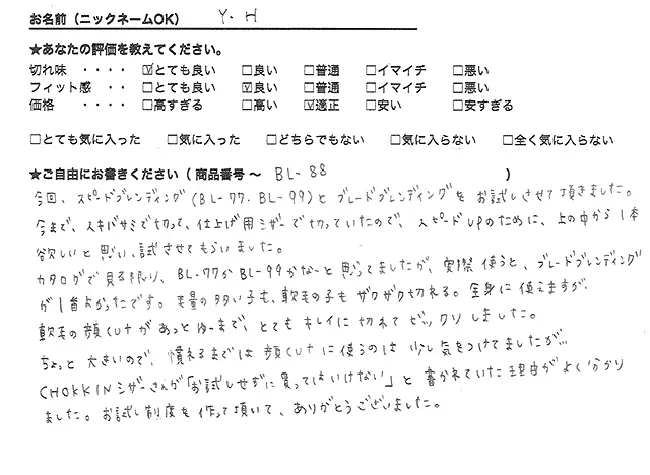 お名前（ニックネームOK） Y・H
★あなたの評価を教えてください。
切れ味 ・・・・ ☑とても良い □良い □普通 □イマイチ □悪い
フィット感 ・・ □とても良い ☑良い □普通 □イマイチ □悪い
価格 ・・・・ □高すぎる □高い ☑適正 □安い □安すぎる
□とても気に入った □気に入った □どちらでもない □気に入らない □全く気に入らない
★ご自由にお書きください（ 商品番号 ～ BL-88 ）
今回、スピードブレンディング(BL-77・BL-99)と ブレードブレンディングを お試しさせて頂きました。
今まで、スキバサミで切って、仕上げ用シザーで切っていたので、スピードUPのために、上の中から1本
欲しいと思い、試させてもらいました。
カタログで見る限り、BL-77かBL-99かな〜と思ってましたが、実際使うと、ブレードブレンディング
が1番よかったです。毛量の多い子も、軟毛の子もザクザク切れる。全身に使えますが、
軟毛の顔cutがあっとゆーまで、とてもキレイに切れてビックリしました。
ちょっと大きいので、慣れるまでは顔cutに使うのは少し気をつけてましたが…
CHOKKINシザーさんが「お試しせずに買ってはいけない」と書かれていた理由がよく分かり
ました。お試し制度を作って頂いて、ありがとうございました。